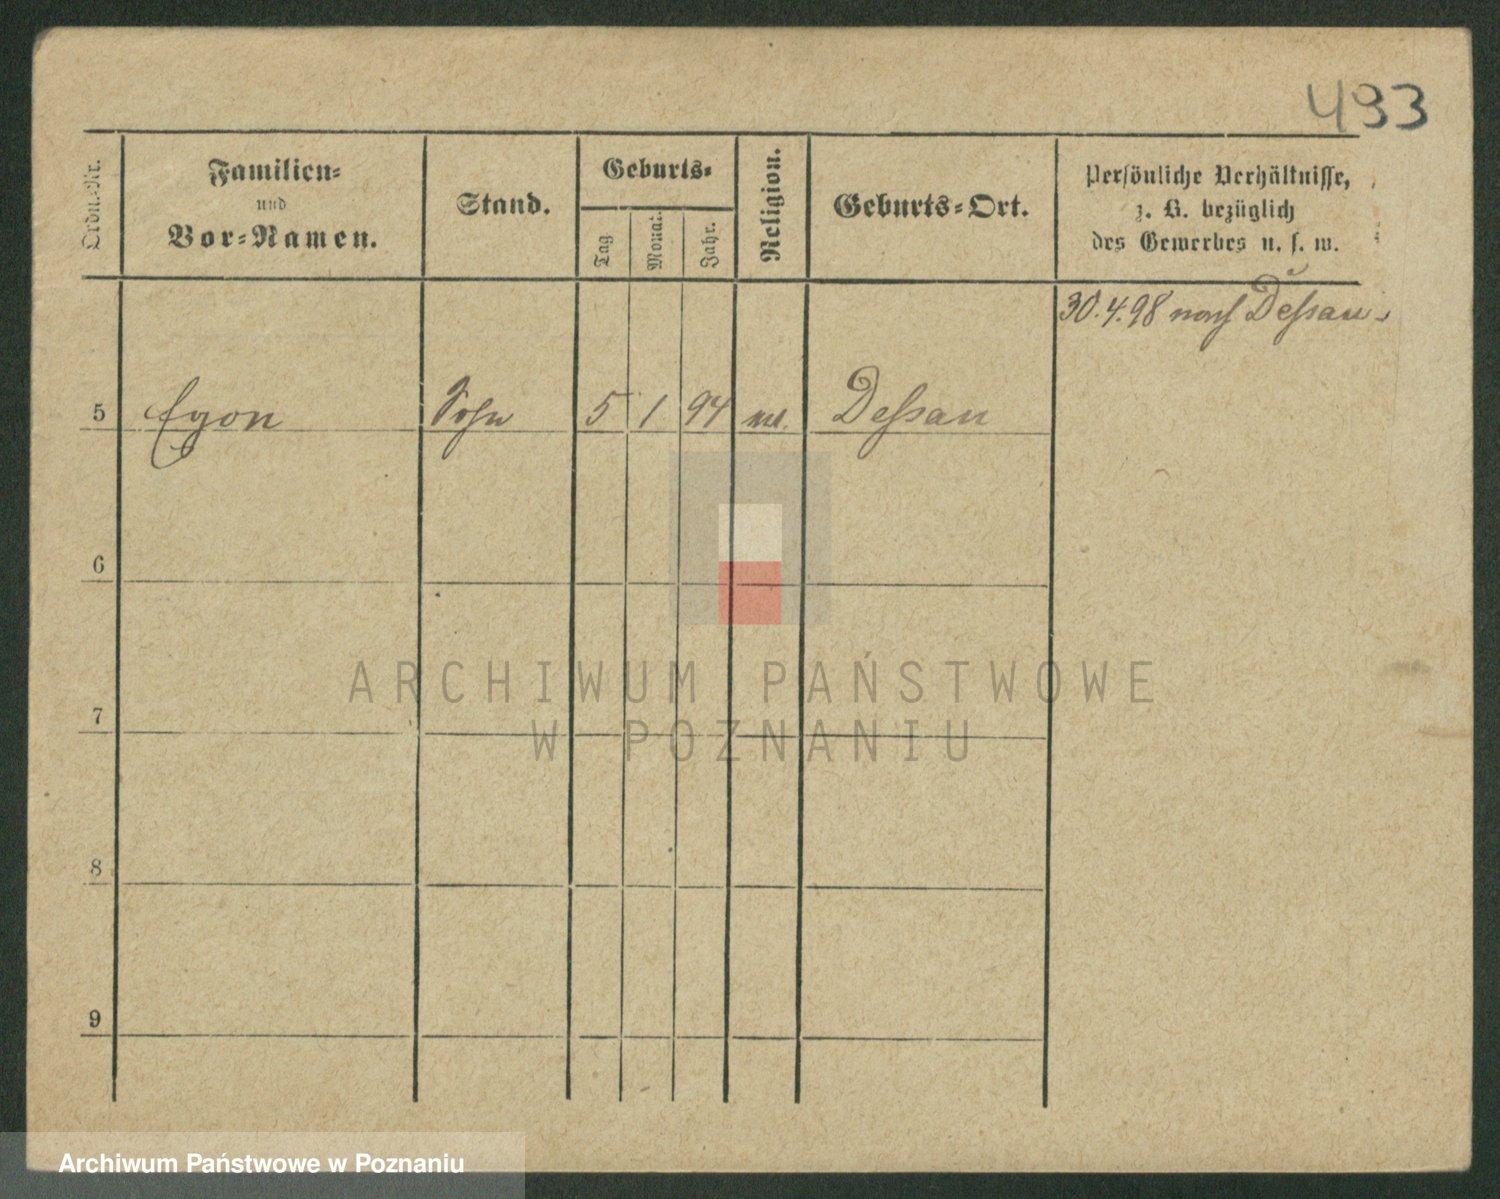 493
Ordn.-Nr.
Familien-
und
Vor-Namen.
Stand.
Geburts-
Tag
Monat
Jahr.
Religion.
Geburts-Ort.
Persönliche Verhältnisse,
z. B. bezüglich
des Gewerbes u. s. w.
30.4.98 nach Dessau.
5 Egon Sohn 5 1 94 Dessau
6
7
8
9
ARCHIWUM PAŃSTWOWE
W POZNANIU
Archiwum Państwowe w Poznaniu